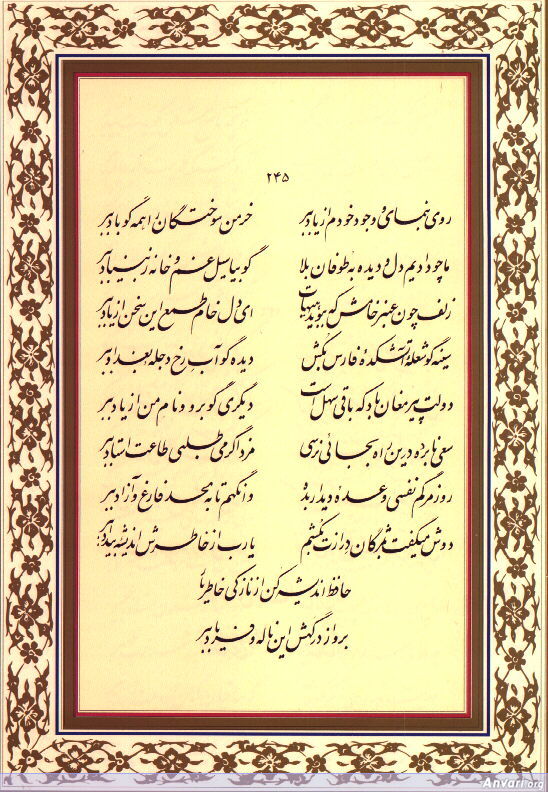 ۲۴۵
روی بنمای و وجود خودم از یاد ببر خرمن سوختگان را همه گو باد ببر
ما چو دادیم دل و دیده به طوفان بلا گو بیا سیل غم و خانه ز بنیاد ببر
زلف چون عنبر خامش که ببوید هیهات ای دل خام طمع این سخن از یاد ببر
سینه گو شعله آتشکده فارس بکش دیده گو آب رخ دجله بغداد ببر
دولت پیر مغان باد که باقی سهل است دیگری گو برو و نام من از یاد ببر
سعی نابرده درین راه بجائی نرسی مزد اگر می طلبی طاعت استاد ببر
روز مرگم نفسی وعده دیدار بده وانگهم تا به لحد فارغ و آزاد ببر
دوش میگفت بمژگان درازت بکشم یا رب از خاطرش اندیشه بیداد ببر
حافظ اندیشه کن از نازکی خاطر یار
برو از درگهش این ناله و فریاد ببر
Anvari.org